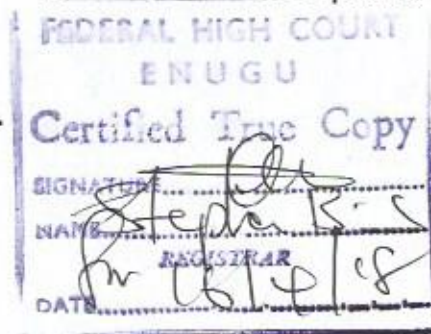 FEDERAL HIGH COURT
ENUGU
Certified True Copy
SIGNATURE
NAME Stephen
REGISTRAR
DATE 16/4/18